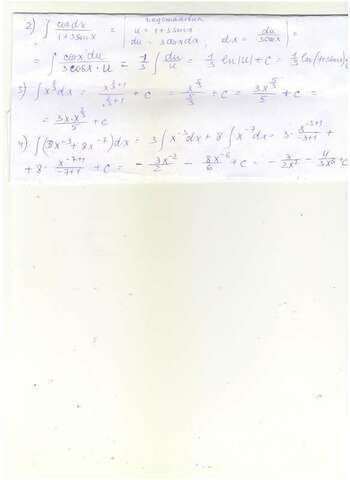 2) ∫ cosxdx / 1+3sinx = | подстановка u = 1+3sinx du = 3cosxdx, dx = du / 3cosx | =
= ∫ cosx du / 3cosx · u = 1/3 ∫ du/u = 1/3 ln|u| + C = 1/3 ln(1+3sinx)+C
3) ∫ x^(2/3) dx = x^(2/3+1) / 2/3+1 + C = x^(5/3) / 5/3 + C = 3x^(5/3) / 5 + C =
= 3x·x^(2/3) / 5 + C
4) ∫(3x^-3 + 8x^-7)dx = 3∫x^-3 dx + 8∫x^-7 dx = 3· x^(-3+1) / -3+1 +
+ 8· x^(-7+1) / -7+1 + C = - 3x^-2 / 2 - 8x^-6 / 6 + C = - 3 / 2x² - 4 / 3x⁶ + C